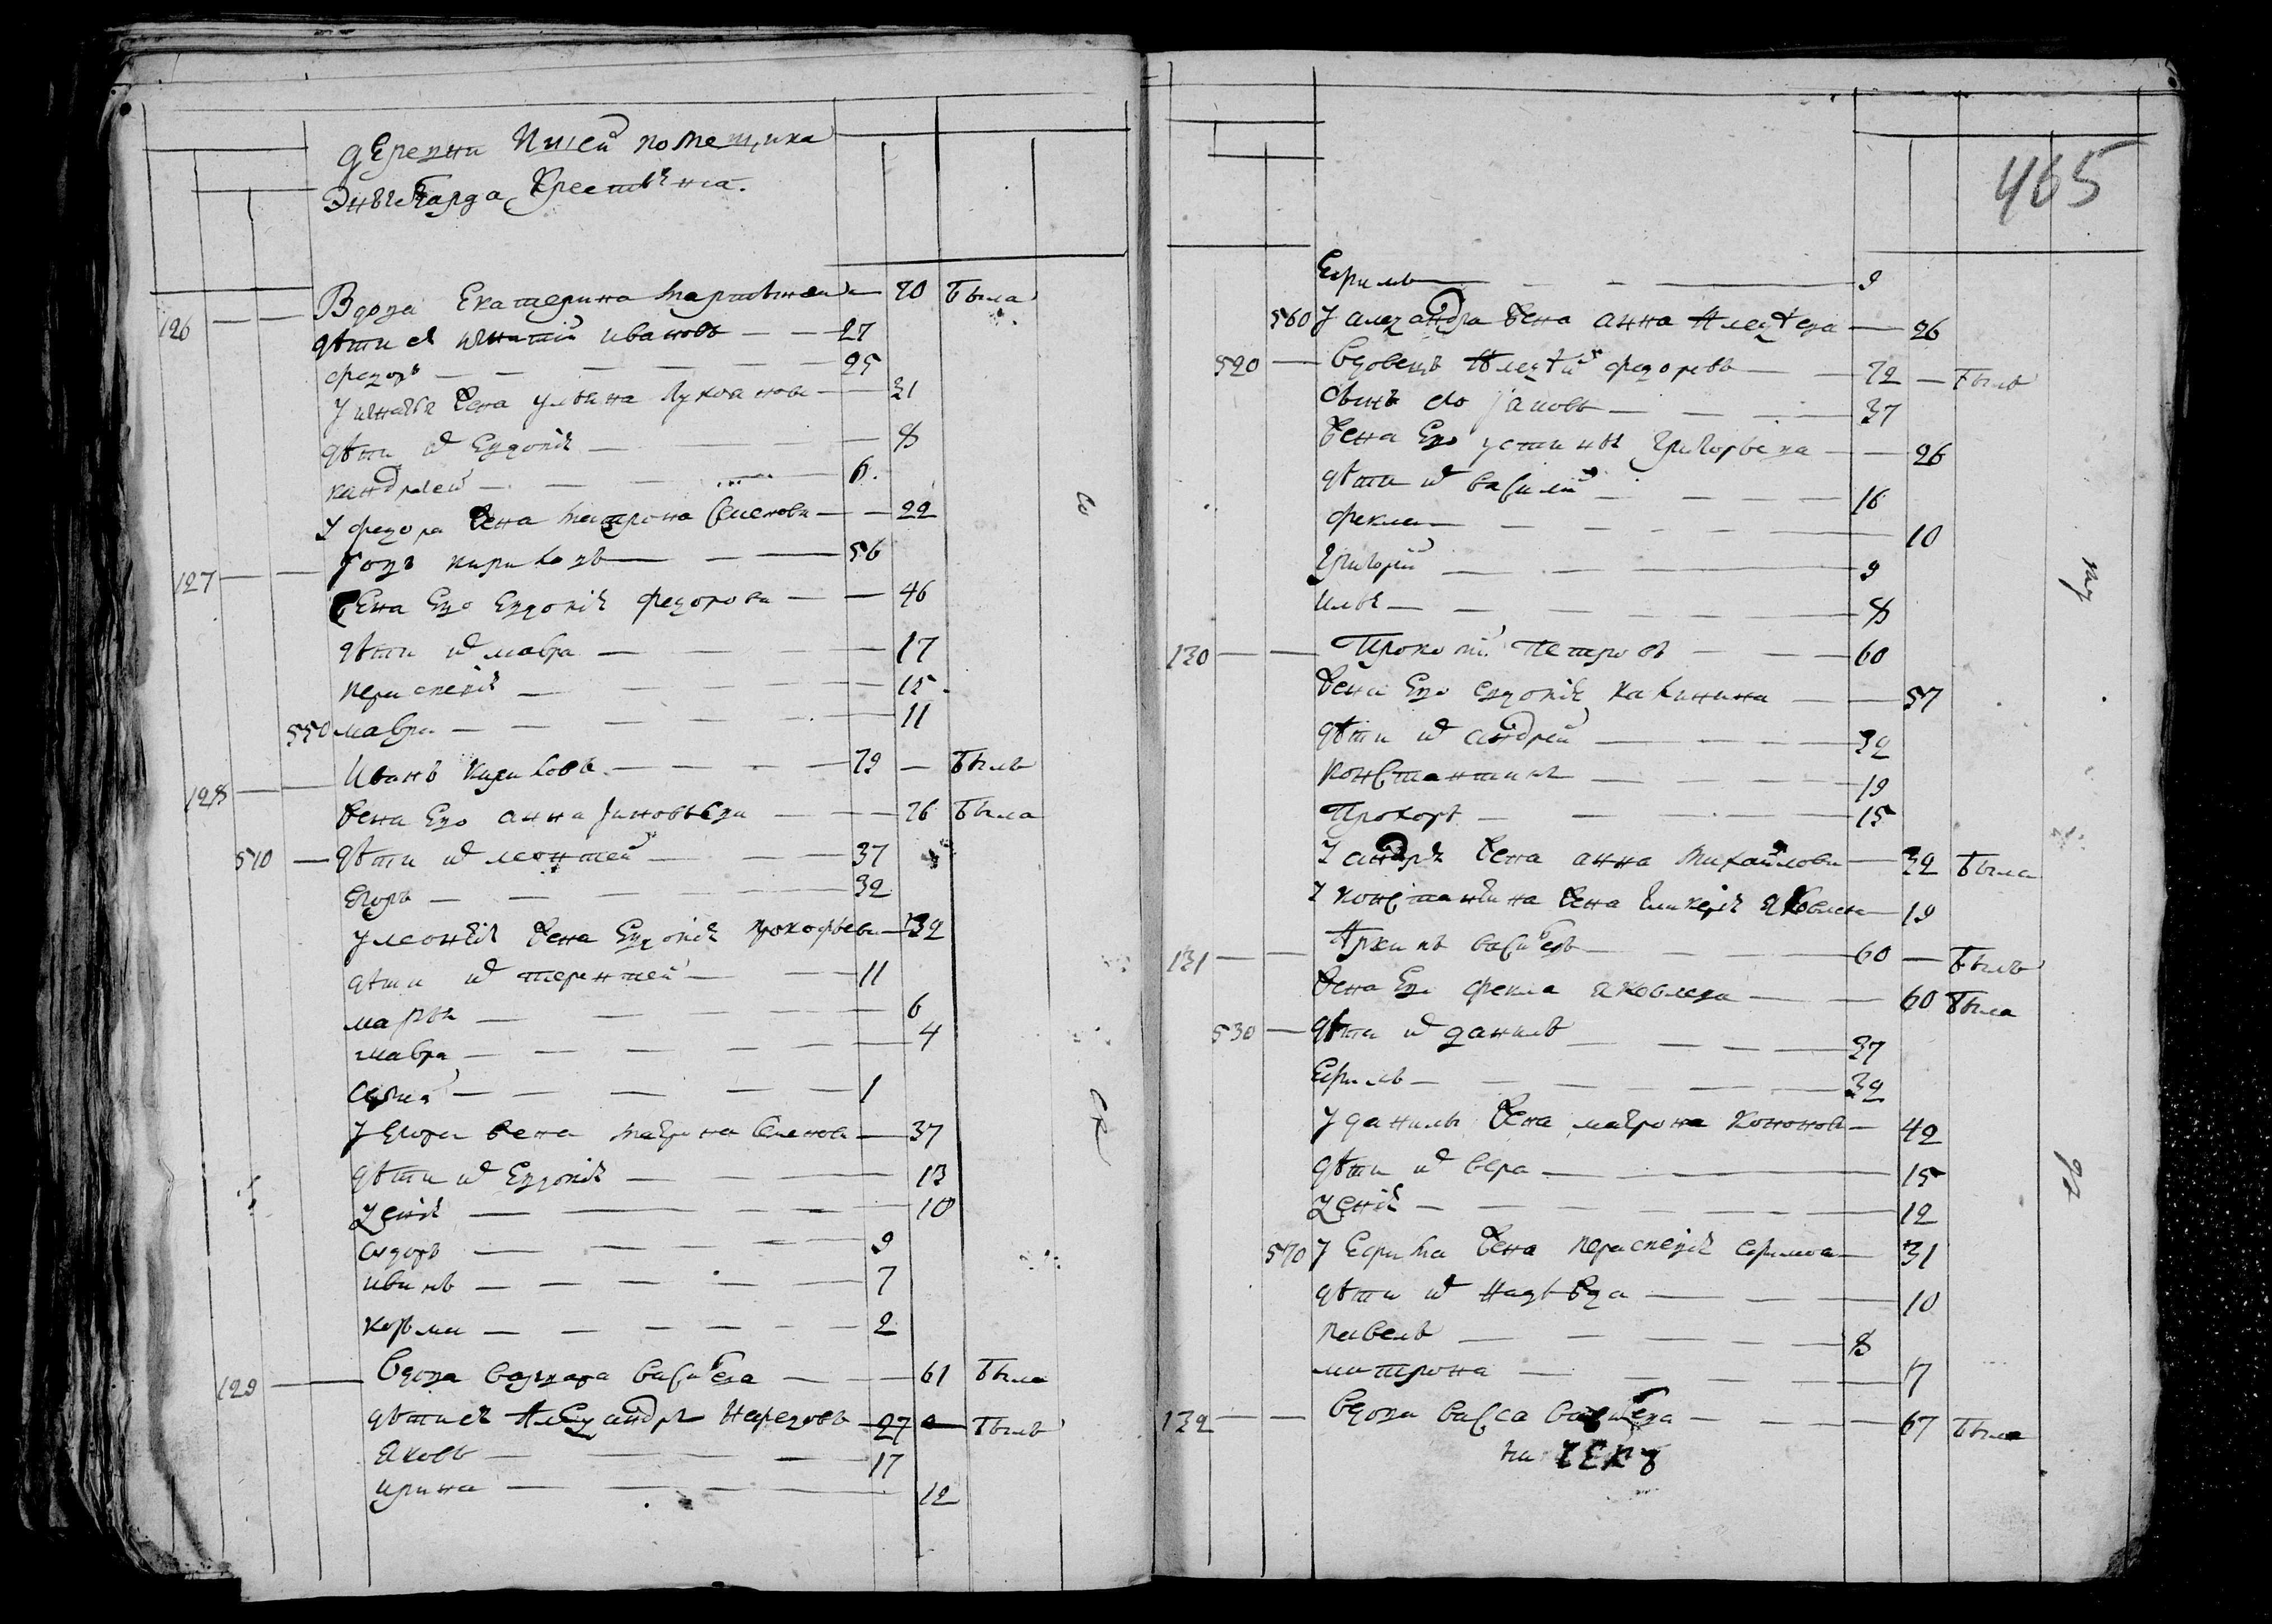 деревни помещика
Энгельгарда крестьяна.
126 Вдова Екатерина Мартынова 70 была
дети ея игнатий иванов 27
федор 25
У игнатья жена ульяна Лукианова 31
дети их Евдокия 8
кандратей 6.
У федора жена Матрона Семенова 22
127 кирилов 56
жена Его Евдокия федорова 46
дети их мавра 17
параскевия 15
550 мавра 11
128 Иванъ кирилов 79 былъ
жена Его анна Зиновьева 76 была
510 дети их леонтей 37
Егоръ 32
У леонтья жена Евдокия прокофьева 32
дети их терентей 11
марья 6
мавра 4
1
У Егора жена матрона Семенова 37
дети их Евдокия 13
Ксения 10
сидоръ 9
иванъ 7
козьма 2
129 вдова варвара васильева 61 была
дети ея Александръ 27 былъ
яковъ 17
ирина 12
465
Ефимъ 9
560 У александра жена анна Алексеева 26
520 вдовецъ Алексей федоровъ 72 былъ
сынъ его 37
жена Его устинья Григорьева 26
дети их василий 16
фекла 10
Григорий 9
илья 8
130 Прокопий Петровъ 60
жена Его евдокия калинина 57
дети их андрей 32
константинъ 19
Прохоръ 15
У андрея жена анна Михайлова 32 была
У константина жена гликерия яковлева 19
131 Архипъ васильевъ 60 былъ
жена Его фекла яковлева 60 была
530 дети их данилъ 37
Ефимъ 32
У данилы жена матрона Кононова 42
дети их вера 15
Ксения 12
570 У Ефима жена параскевия ефимова 31
дети их надежда 10
павелъ 8
матрона 7
132 вдова васса васильева 67 была